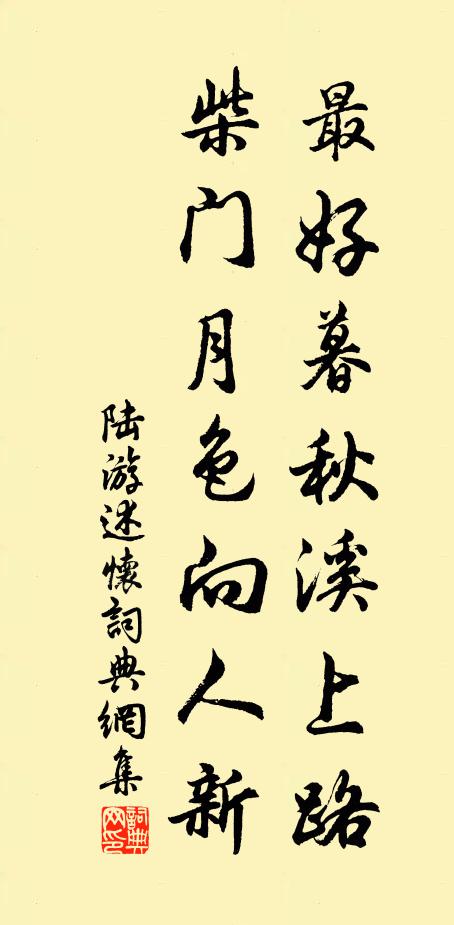 最好暮秋溪上路
柴门月色向人新
陆游述懷詞典網集
詞典
网印